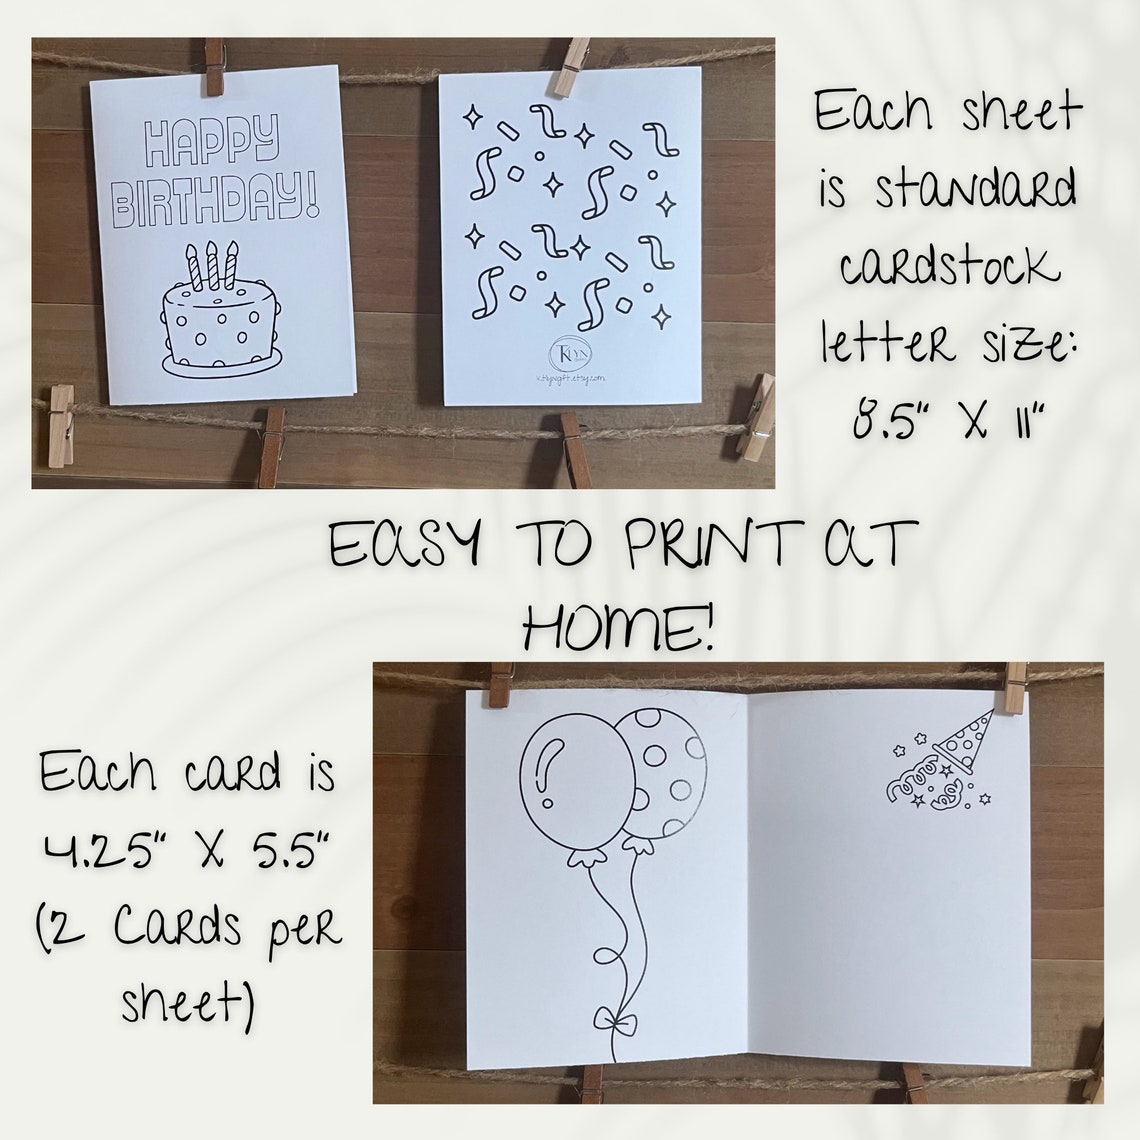 HAPPY
BIRTHDAY!
Each sheet
is standard
cardstock
letter size:
8.5" X 11"
EASY TO PRINT AT
HOME!
Each card is
4.25" X 5.5"
(2 Cards per
sheet)